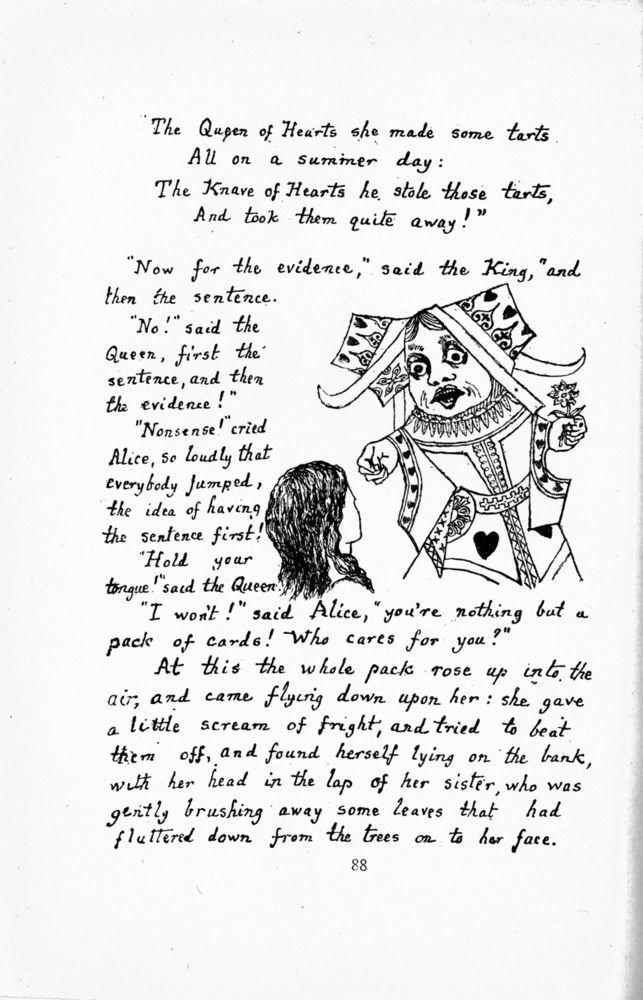 "The Queen of Hearts she made some tarts
All on a summer day:
The Knave of Hearts he stole those tarts,
And took them quite away!"
"Now for the evidence," said the King, "and
then the sentence.
"No!" said the
Queen, first the
sentence, and then
the evidence!"
"Nonsense!" cried
Alice, so loudly that
everybody jumped,
the idea of having
the sentence first!
"Hold your
tongue!" said the Queen.
"I won't!" said Alice, "you're nothing but a
pack of cards! Who cares for you?"
At this the whole pack rose up into the
air, and came flying down upon her: she gave
a little scream of fright, and tried to beat
them off, and found herself lying on the bank,
with her head in the lap of her sister, who was
gently brushing away some leaves that had
fluttered down from the trees on to her face.
88